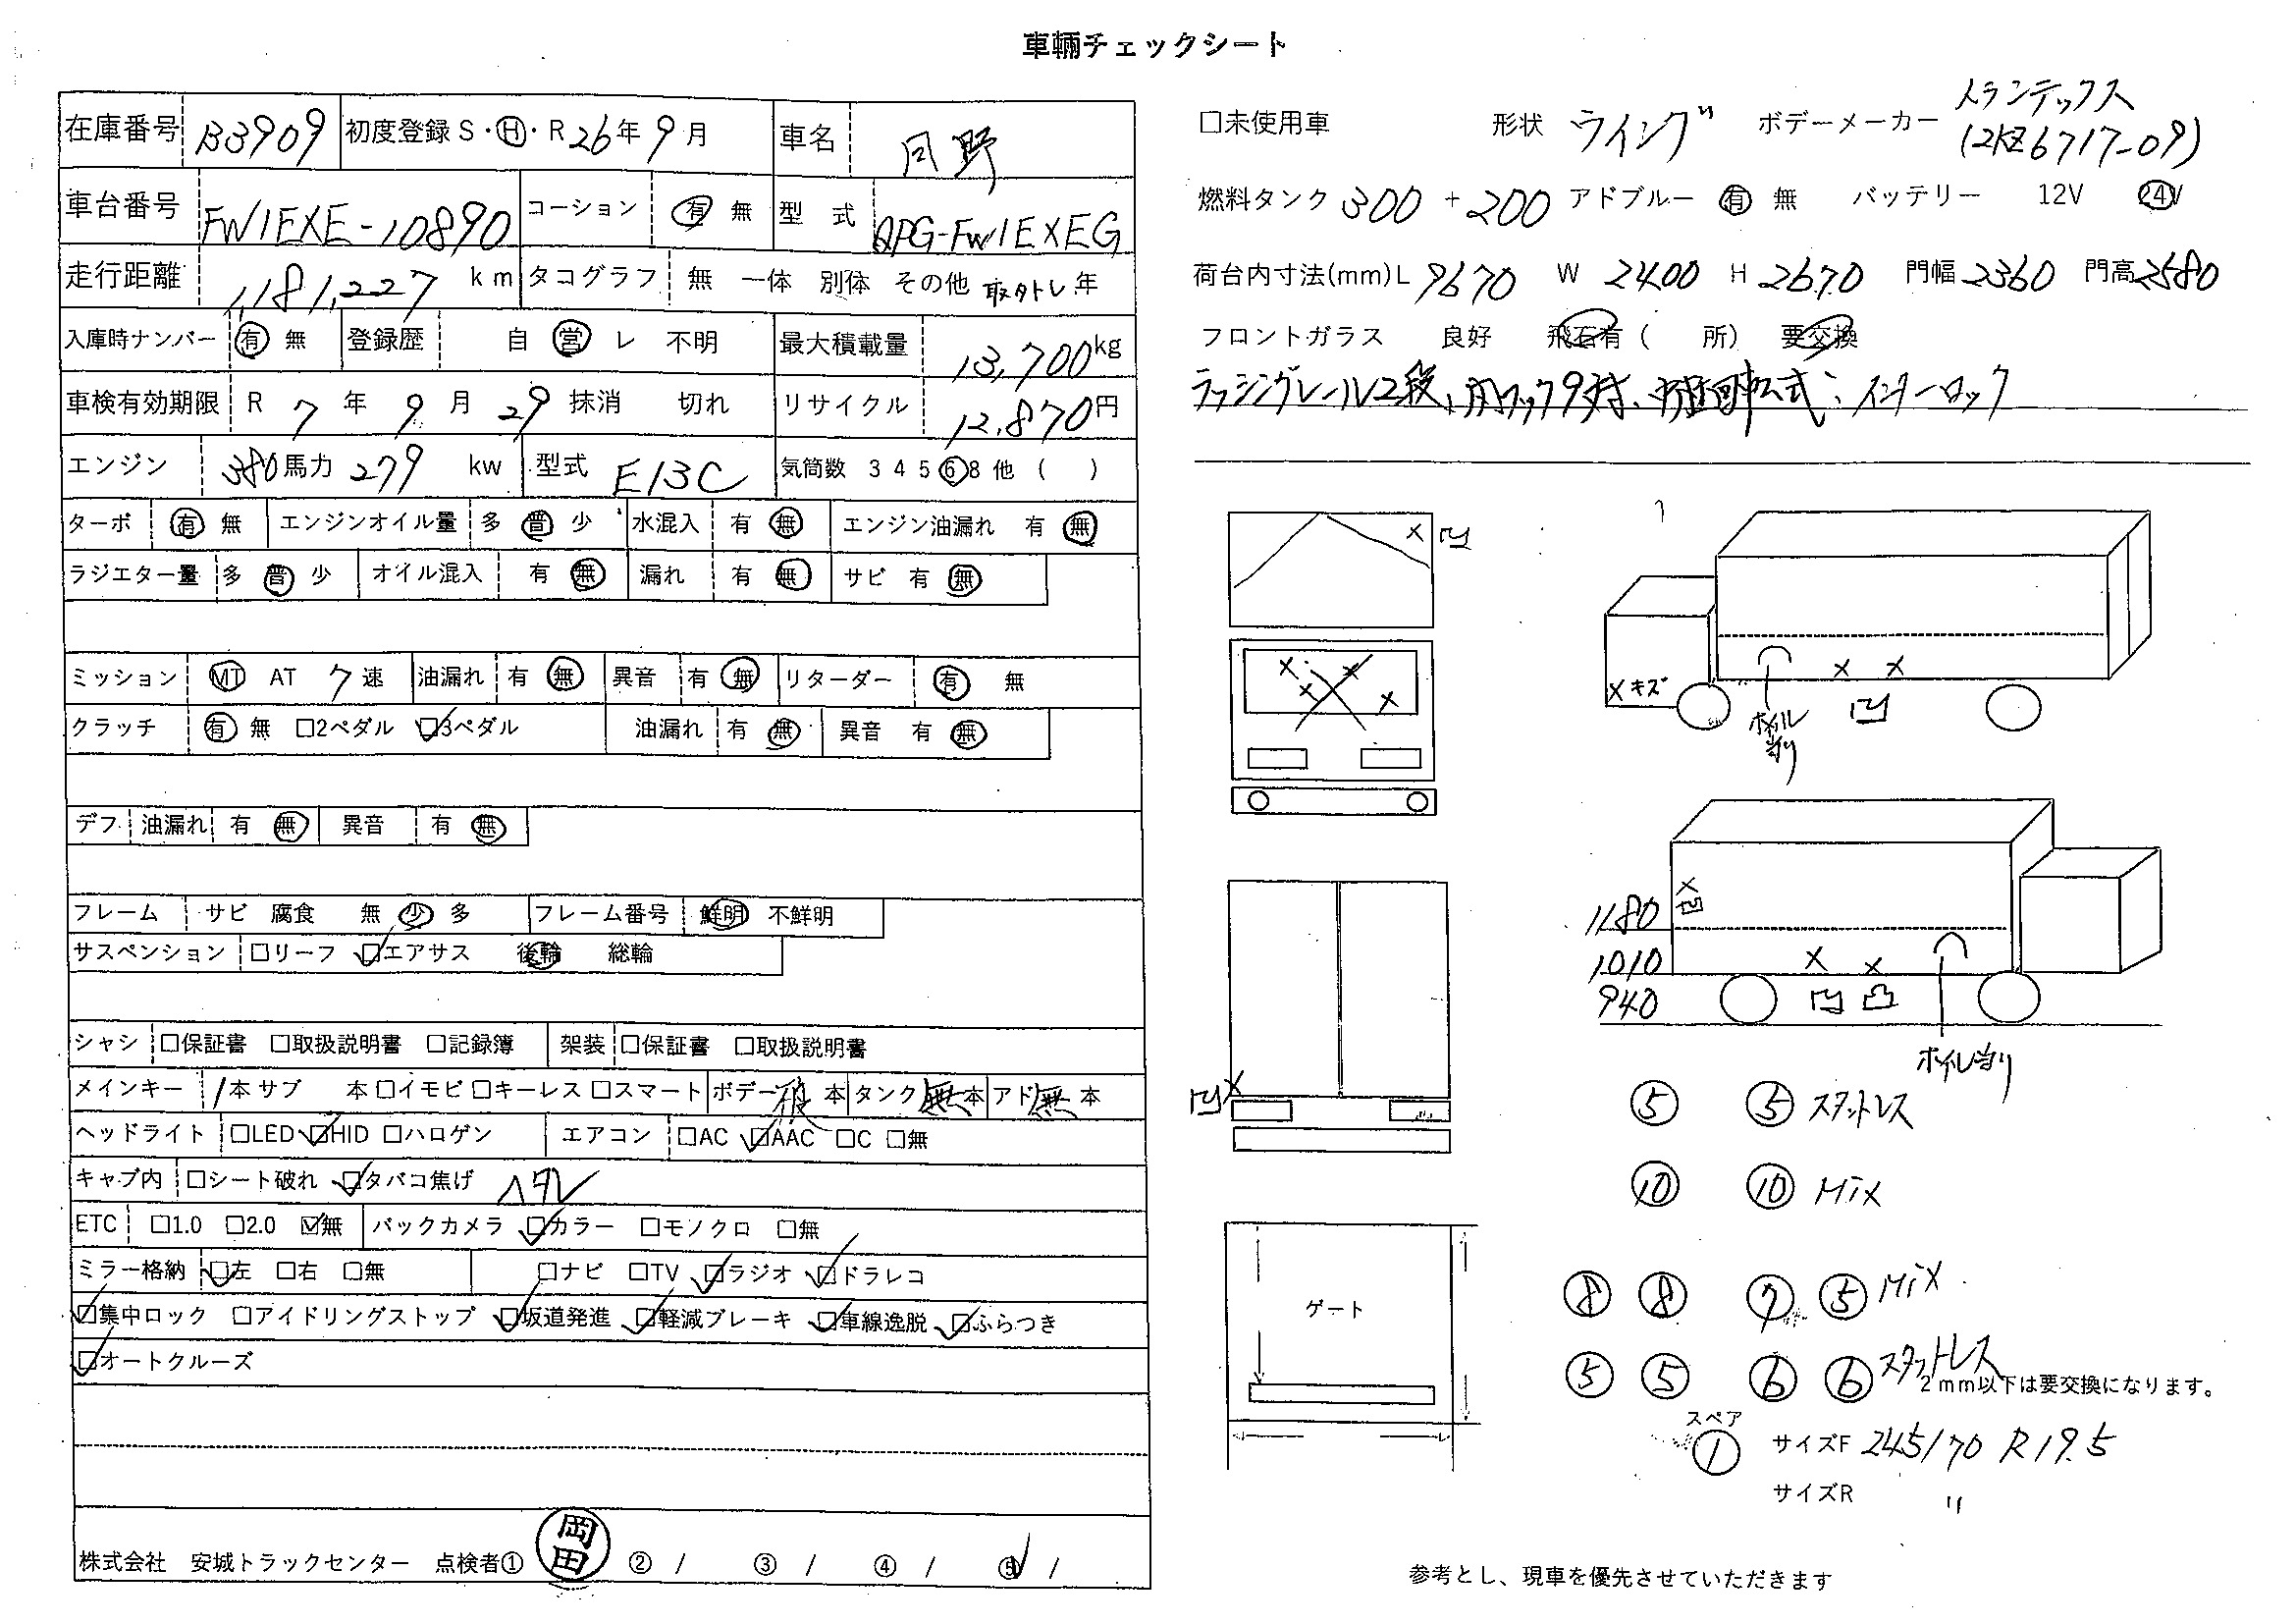 車輌チェックシート
在庫番号 B3909 初度登録 S・H・R 26年 9月 車名 日野
車台番号 FW1EXE-10890 コーション 有 無 型式 QPG-FW1EXEG
走行距離 1,181,227 km タコグラフ 無 一体 別体 その他 取外し 年
入庫時ナンバー 有 無 登録歴 自 営 レ 不明 最大積載量 13,700kg
車検有効期限 R 7年 9月 29 抹消 切れ リサイクル 12,870円
エンジン 380馬力 279 kw 型式 E13C 気筒数 3 4 5 6 8 他 ( )
ターボ 有 無 エンジンオイル量 多 普 少 水混入 有 無 エンジン油漏れ 有 無
ラジエター量 多 普 少 オイル混入 有 無 漏れ 有 無 サビ 有 無
ミッション MT AT 7速 油漏れ 有 無 異音 有 無 リターダー 有 無
クラッチ 有 無 □2ペダル ☑3ペダル 油漏れ 有 無 異音 有 無
デフ 油漏れ 有 無 異音 有 無
フレーム サビ 腐食 無 少 多 フレーム番号 鮮明 不鮮明
サスペンション □リーフ ☑エアサス 後輪 総輪
シャシ □保証書 □取扱説明書 □記録簿 架装 □保証書 □取扱説明書
メインキー 1本 サブ 本 □イモビ □キーレス □スマート ボデー 本 タンク 無 本 アド 無 本
ヘッドライト □LED ☑HID □ハロゲン エアコン □AC ☑AAC □C □無
キャブ内 □シート破れ ☑タバコ焦げ
ETC □1.0 □2.0 ☑無 バックカメラ ☑カラー □モノクロ □無
ミラー格納 ☑左 □右 □無 □ナビ □TV ☑ラジオ ☑ドラレコ
☑集中ロック □アイドリングストップ ☑坂道発進 ☑軽減ブレーキ ☑車線逸脱 ☑ふらつき
☑オートクルーズ
株式会社 安城トラックセンター 点検者① 岡田 ② / ③ / ④ / ⑤ /
□未使用車 形状 ウイング ボデーメーカー トランテックス
(2KE6717-09)
燃料タンク 300 + 200 アドブルー 有 無 バッテリー 12V 24V
荷台内寸法(mm)L 9670 W 2400 H 2670 門幅 2360 門高 2580
フロントガラス 良好 飛石有 ( 所) 要交換
ラッシングレール2段、 インターロック
凹
キズ
ホイル当り
凹
1180
1010
940
凹
凹 凸
ホイル当り
凹
⑤ ⑤ スタットレス
⑩ ⑩ Mix
⑧ ⑧ ⑦ ⑤ Mix
⑤ ⑤ ⑥ ⑥ スタットレス
2mm以下は要交換になります。
ゲート
スペア
① サイズF 245/70 R19.5
サイズR 〃
参考とし、現車を優先させていただきます